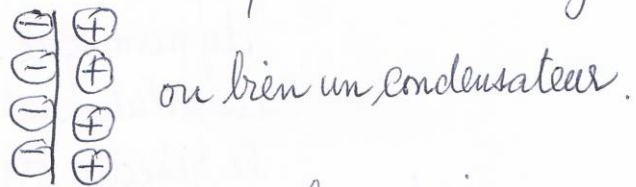 ⊖ ⊕
⊖ ⊕ ou bien un condensateur.
⊖ ⊕
⊖ ⊕